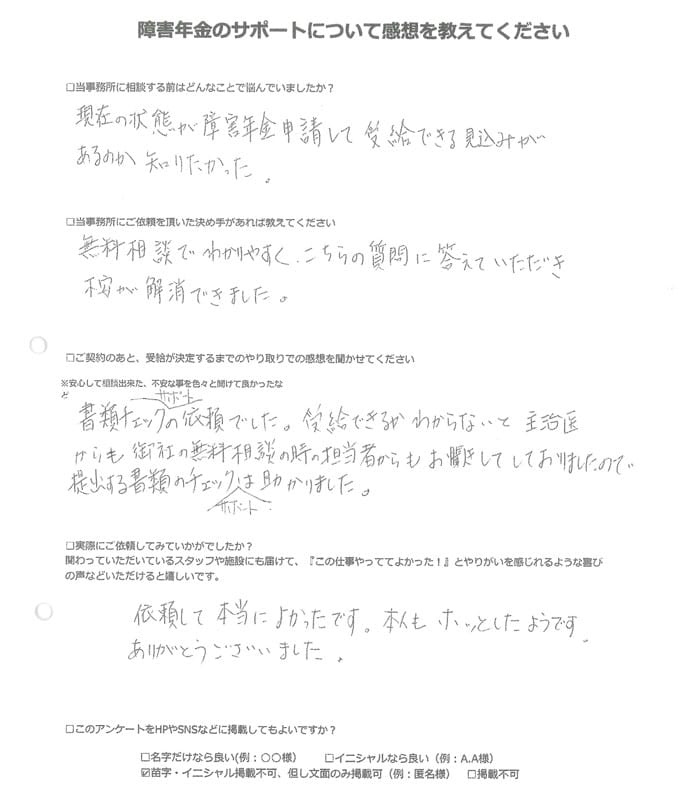 障害年金のサポートについて感想を教えてください
□当事務所に相談する前はどんなことで悩んでいましたか？
現在の状態が障害年金申請して受給できる見込みが
あるのか知りたかった。
□当事務所にご依頼を頂いた決め手があれば教えてください
無料相談でわかりやすく、こちらの質問に答えていただき
不安が解消できました。
□ご契約のあと、受給が決定するまでのやり取りでの感想を聞かせてください
※安心して相談出来た、不安な事を色々と聞けて良かったな
ど
サポート
書類チェックの依頼でした。受給できるかわからないと主治医
からも御社の無料相談の時の担当者からもお聞きしてしておりましたので
提出する書類のチェックは助かりました。
サポート
□実際にご依頼してみていかがでしたか？
関わっていただいているスタッフや施設にも届けて、『この仕事やっててよかった！』とやりがいを感じれるような喜び
の声などいただけると嬉しいです。
依頼して本当によかったです。本人もホッとしたようです。
ありがとうございました。
□このアンケートをHPやSNSなどに掲載してもよいですか？
□名字だけなら良い(例：〇〇様） □イニシャルなら良い（例：A.A様）
☑苗字・イニシャル掲載不可、但し文面のみ掲載可（例：匿名様） □掲載不可